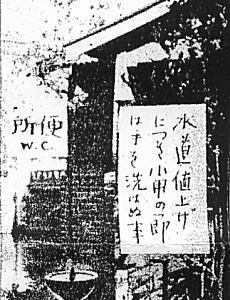 所便
W.C.
水道値上げ
につき小用の節
は手を洗はぬ事